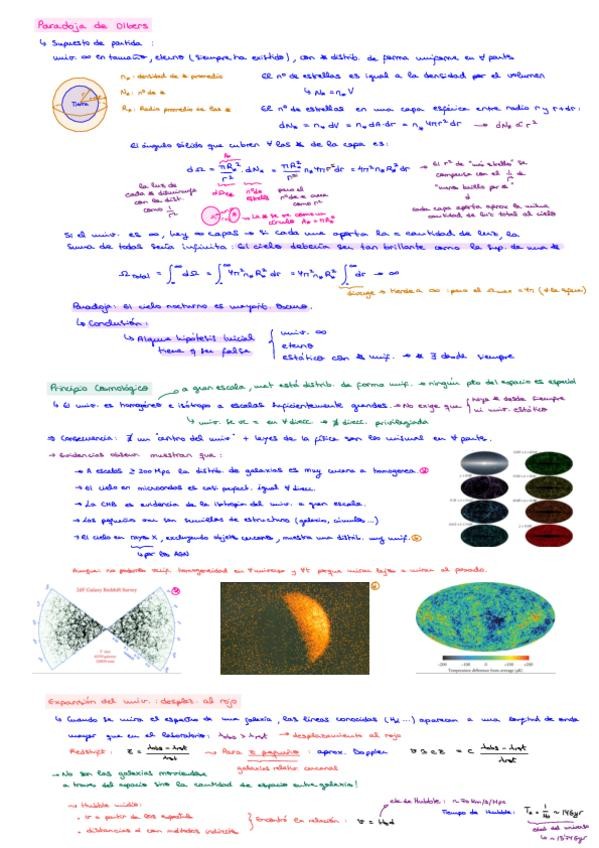 Paradoja de Olbers
↳ Supuesto de partida :
univ. ∞ en tamaño, eterno (siempre ha existido), con ★ distrib. de forma uniforme en ∀ parts
n★: densidad de ★ promedio
N★: nº de ★
R★: Radio promedio de las ★
Tierra
El nº de estrellas es igual a la densidad por el volumen
↳ N★ = n★ V
El nº de estrellas en una capa esférica entre radio r y r+dr:
dN★ = n★ dV = n★ dA·dr = n★ 4πr² dr → dN★ ∝ r²
El ángulo sólido que cubren ∀ las ★ de la capa es:
dΩ = πR★²/r² · dN★ = πR★²/r² n★ 4πr² dr = 4π² n★ R★² dr
la luz de cada ★ disminuye con la dist. como 1/r²
La ★ se ve como un círculo A★ = πR★²
Si el r² de "más estrellas" se compensa con el 1/r² "menos brillo por ★"
cada capa aporta aprox la misma cantidad de luz total al cielo
Si el univ. es ∞, hay ∞ capas → si cada una aporta la = cantidad de luz, la
suma de todas sería infinita: El cielo debería ser tan brillante como la sup. de una ★
Ω total = ∫₀^∞ dΩ = ∫₀^∞ 4π² n★ R★² dr = 4π² n★ R★² ∫₀^∞ dr → ∞
diverge → tiende a ∞ : pero el Ω max = 4π (∀ la esfera)
Paradoja: El cielo nocturno es mayorit. oscuro.
↳ Conclusión:
↳ Alguna hipótesis inicial tiene q ser falsa
univ. ∞
eterno
estático con ★ unif. → ★ ∃ desde siempre
Principio Cosmológico
a gran escala, mat está distrib. de forma unif. → ningún pto del espacio es especial
↳ El univ. es homogéneo e isótropo a escalas suficientemente grandes. → No exige que
haya ★ desde siempre
ni univ. estático
↳ univ. se ve = en ∀ direcc. → ∄ direcc. privilegiada
⇒ Consecuencia: ∄ un "centro del univ" + leyes de la física son las mismas en ∀ parts.
→ Evidencias observ. muestran que:
→ A escalas ≥ 200 Mpc la distrib. de galaxias es muy cercana a homogénea.
→ El cielo en microondas es casi perfect. igual ∀ direcc.
→ La CMB es evidencia de la isotropía del univ. a gran escala.
→ Las pequeñas son semillas de estructura (galaxias, cúmulos...)
→ El cielo en rayos X, excluyendo objetos cercanos, muestra una distrib. muy unif.
↳ por los AGN
Aunque no podemos verif. homogeneidad en ∀ universo y ∀t porque mirar lejos = mirar al pasado.
2dF Galaxy Redshift Survey
Temperature difference from average (μK)
-200 -100 0 +100 +200
Expansión del univ. : desplaz. al rojo
↳ Cuando se mira el espectro de una galaxia, las líneas conocidas (Hα ...) aparecen a una longitud de onda
mayor que en el laboratorio: λobs > λrest → desplazamiento al rojo
Redshift: z = (λobs − λrest)/λrest → Para z pequeño: aprox. Doppler v ≈ cz = c (λobs − λrest)/λrest
galaxias relativ. cercanas
→ No son las galaxias moviéndose
a través del espacio sino la cantidad de espacio entre galaxias!
→ Hubble midió:
• v a partir de los espectros
• distancias d con métodos indirectos
Encontró la relación: v = H₀d
cte de Hubble: ~ 70 km/s/Mpc
Tiempo de Hubble: T₀ = 1/H₀ ~ 14 Gyr
edad del universo